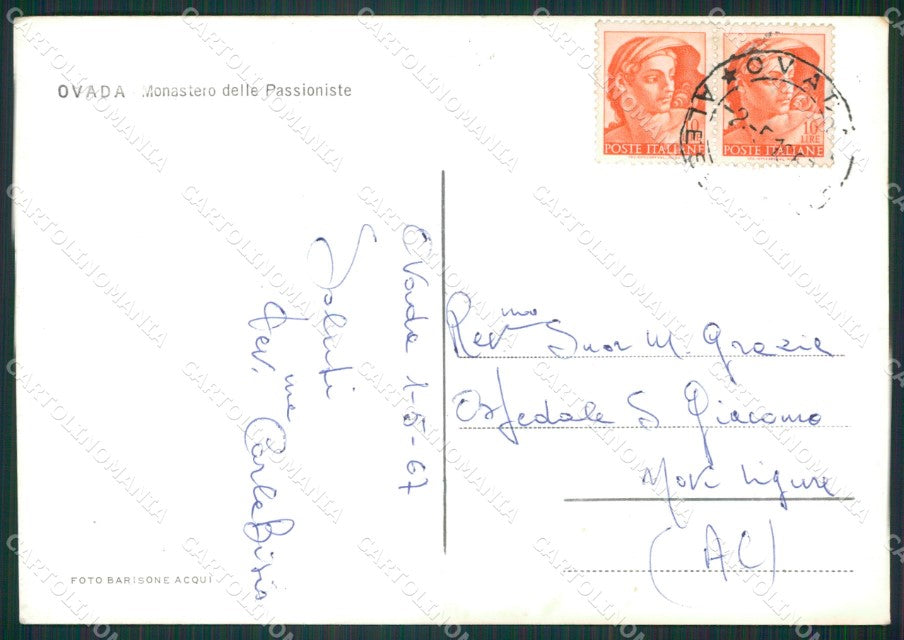 OVADA Monastero delle Passioniste
10 LIRE
POSTE ITALIANE
10 LIRE
POSTE ITALIANE
★ OVAD
ALE
Ovada 1-5-67
Saluti
Carla Bisio
Rev.mo Suor M. Grazie
Ospedale S Giacomo
Novi Ligure
(AL)
FOTO BARISONE ACQUI
CARTOLINOMANIA